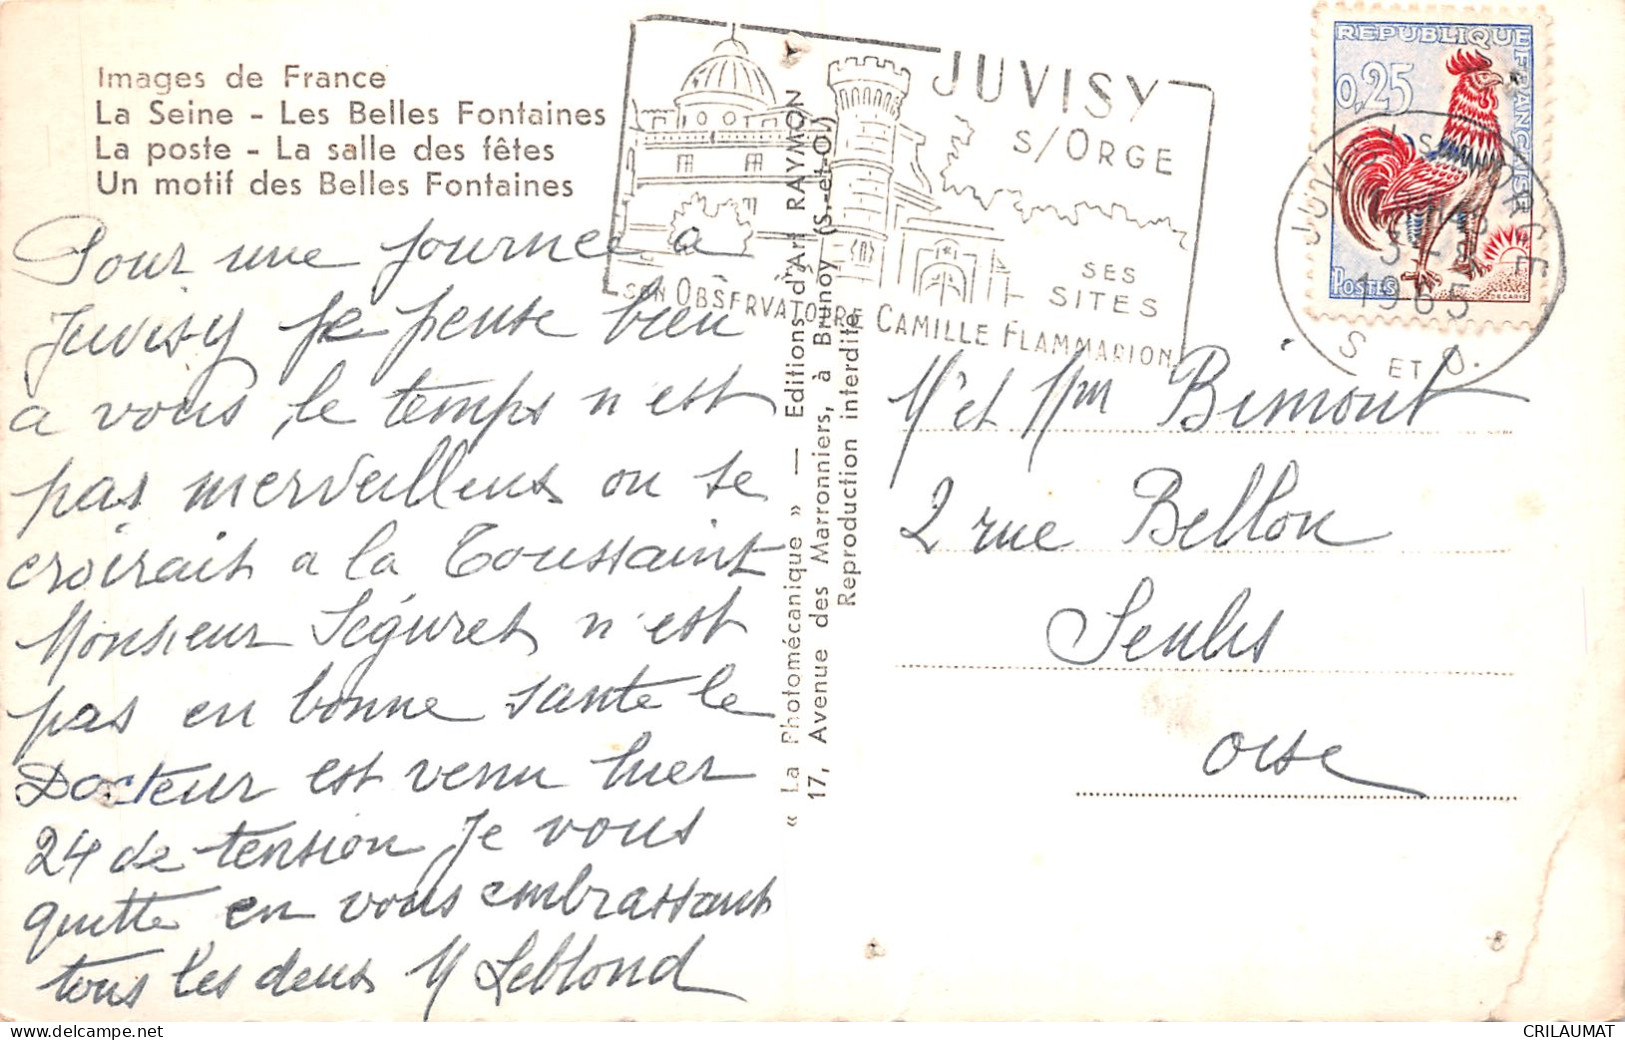 Images de France
La Seine - Les Belles Fontaines
La poste - La salle des fêtes
Un motif des Belles Fontaines
Pour une journee a
Juvisy je pense bien
a vous, le temps n'est
pas merveilleux on se
croirait a la Toussaint
Monsieur Séguret n'est
pas en bonne sante le
Docteur est venu hier
24 de tension Je vous
quitte en vous embrassant
tous les deux M Leblond
« La Photomécanique » — Editions d'Art RAYMON
17, Avenue des Marronniers, à Brunoy (S.-et-O.)
Reproduction interdite
JUVISY
S/ORGE
SES
SITES
SON OBSERVATOIRE CAMILLE FLAMMARION
REPUBLIQUE FRANÇAISE
0,25
POSTES
DECARIS
JUVISY S/ ORGE
1965
S ET O.
M et Mm Bimont
2 rue Bellon
Senlis
Oise
CRILAUMAT